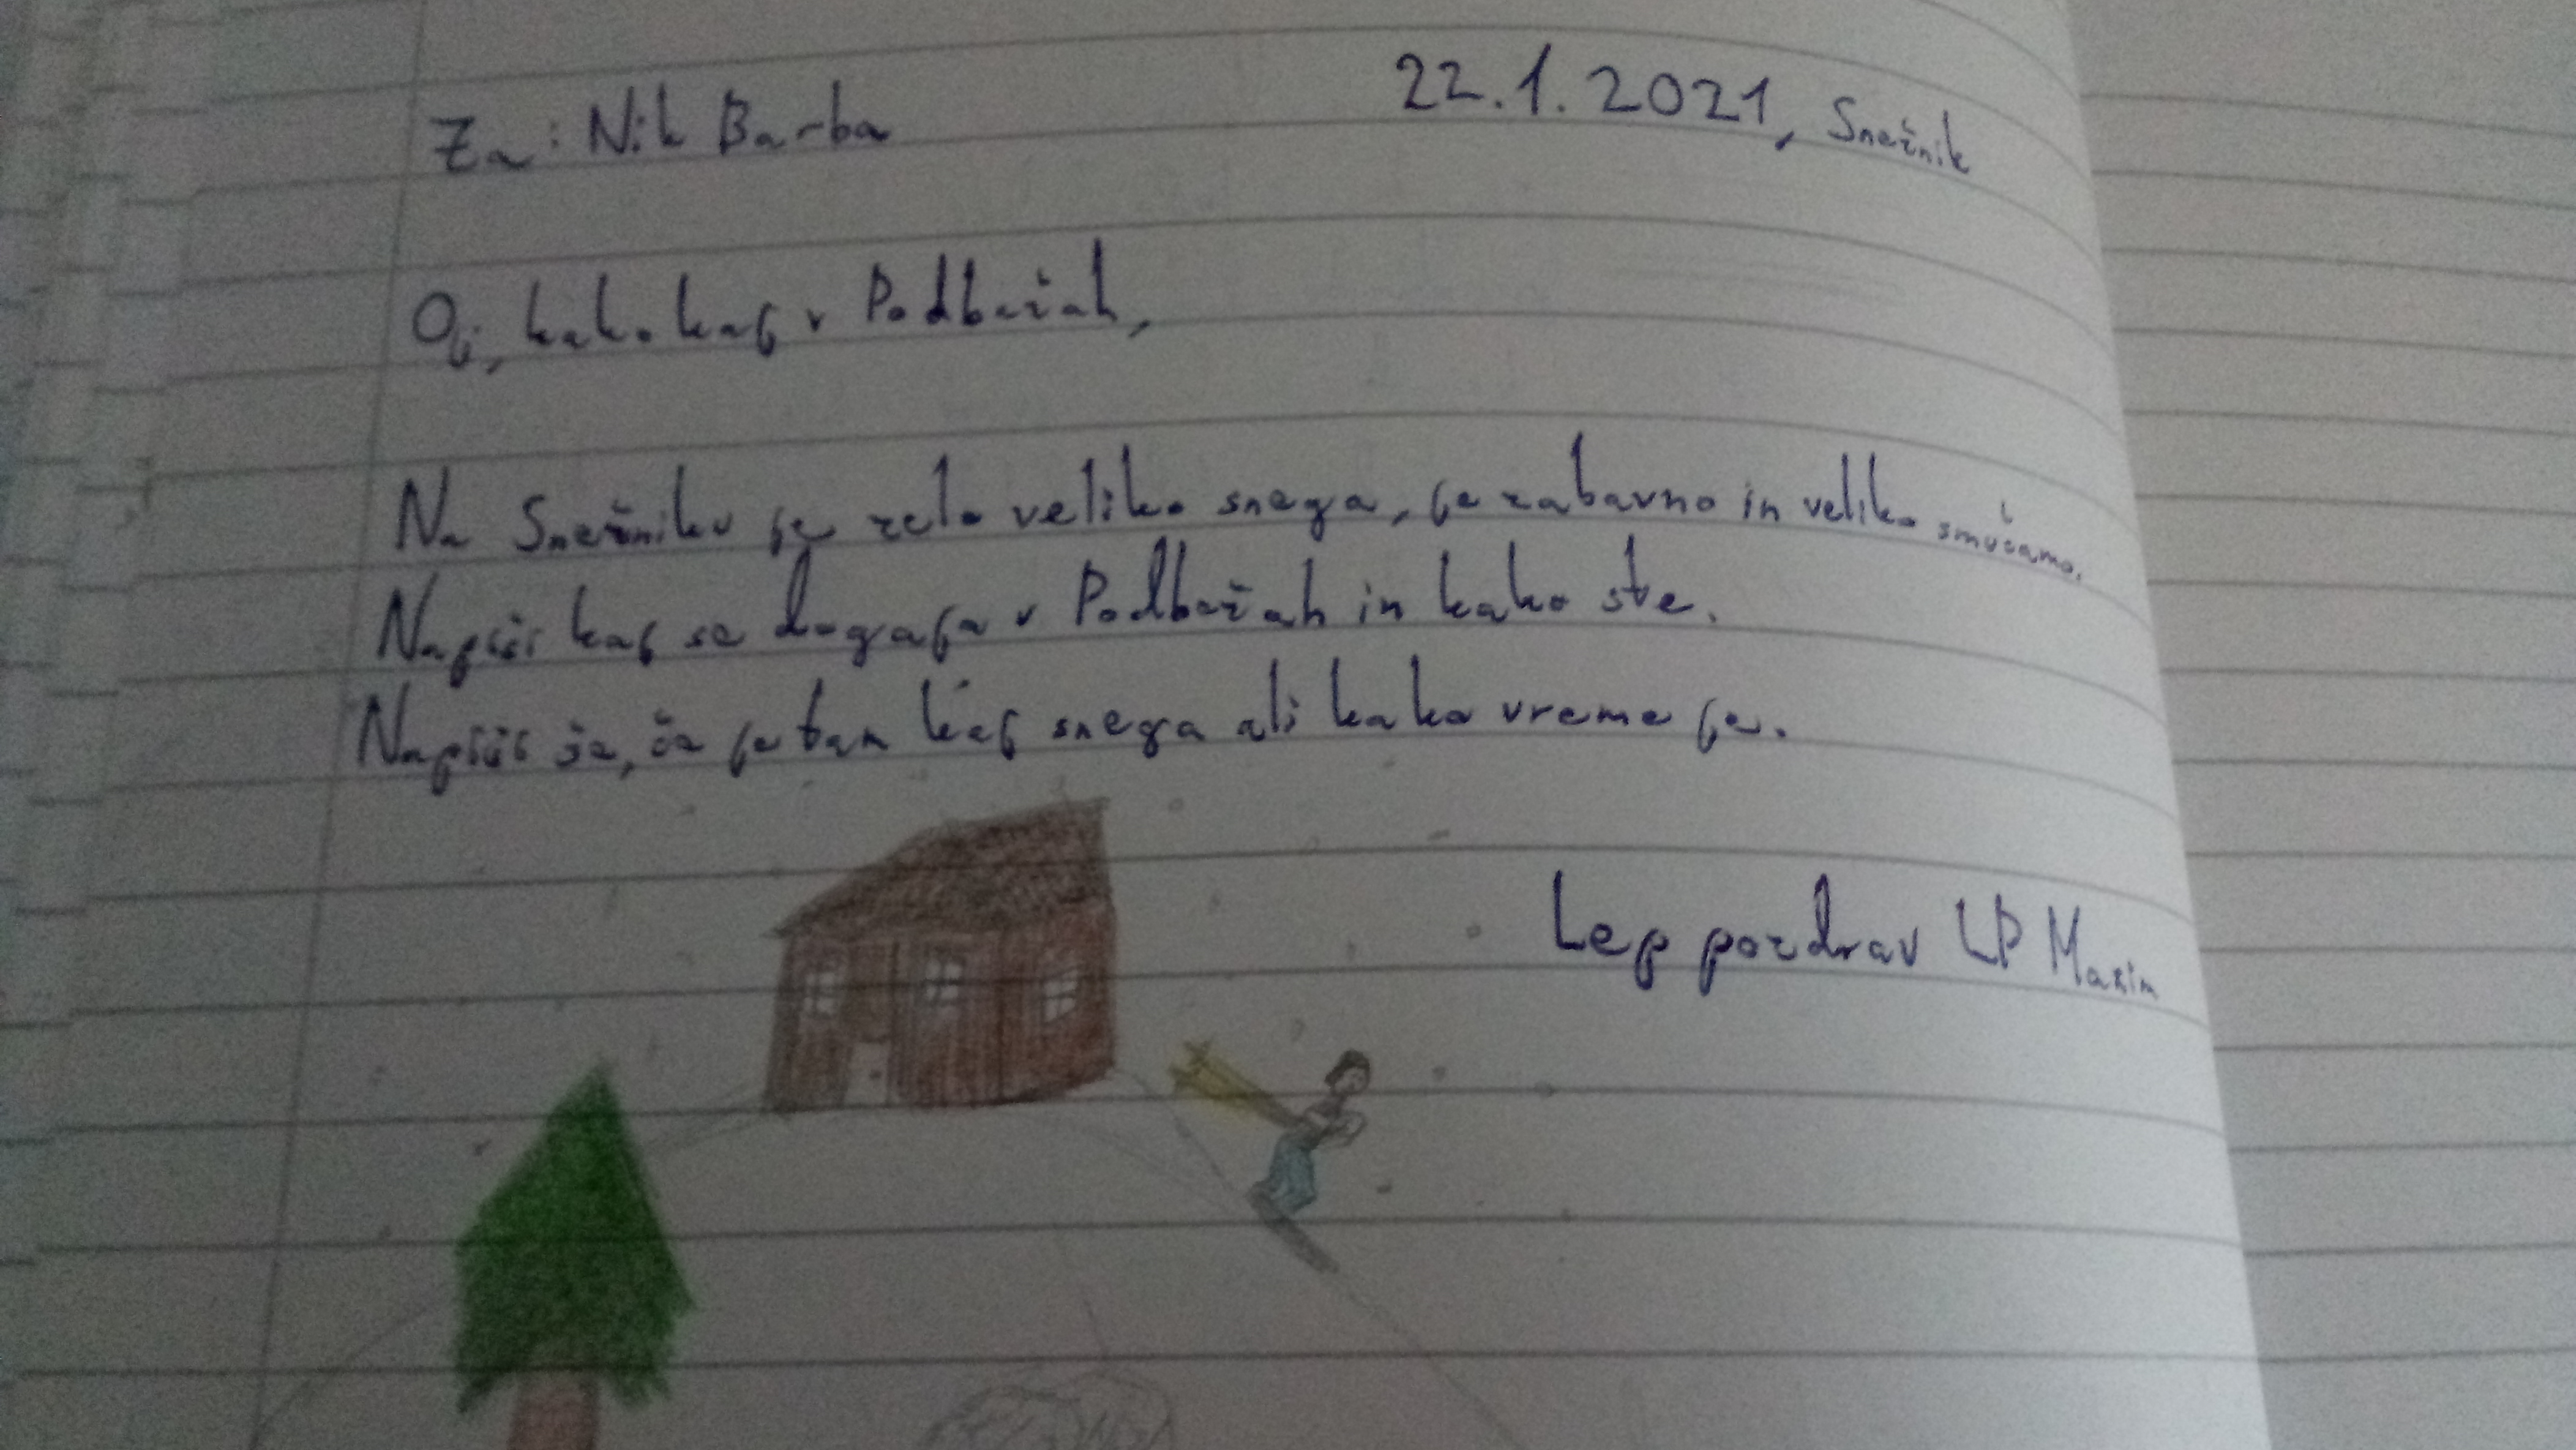 Za: Nik Barba
22.1.2021, Snežnik
Oj, kako kaj v Podbežah,
Na Snežniku je zelo veliko snega, je zabavno in veliko smučamo.
Napiši kaj se dogaja v Podbežah in kako ste.
Napiši še, če je tam kaj snega ali kako vreme je.
Lep pozdrav LP Maxim